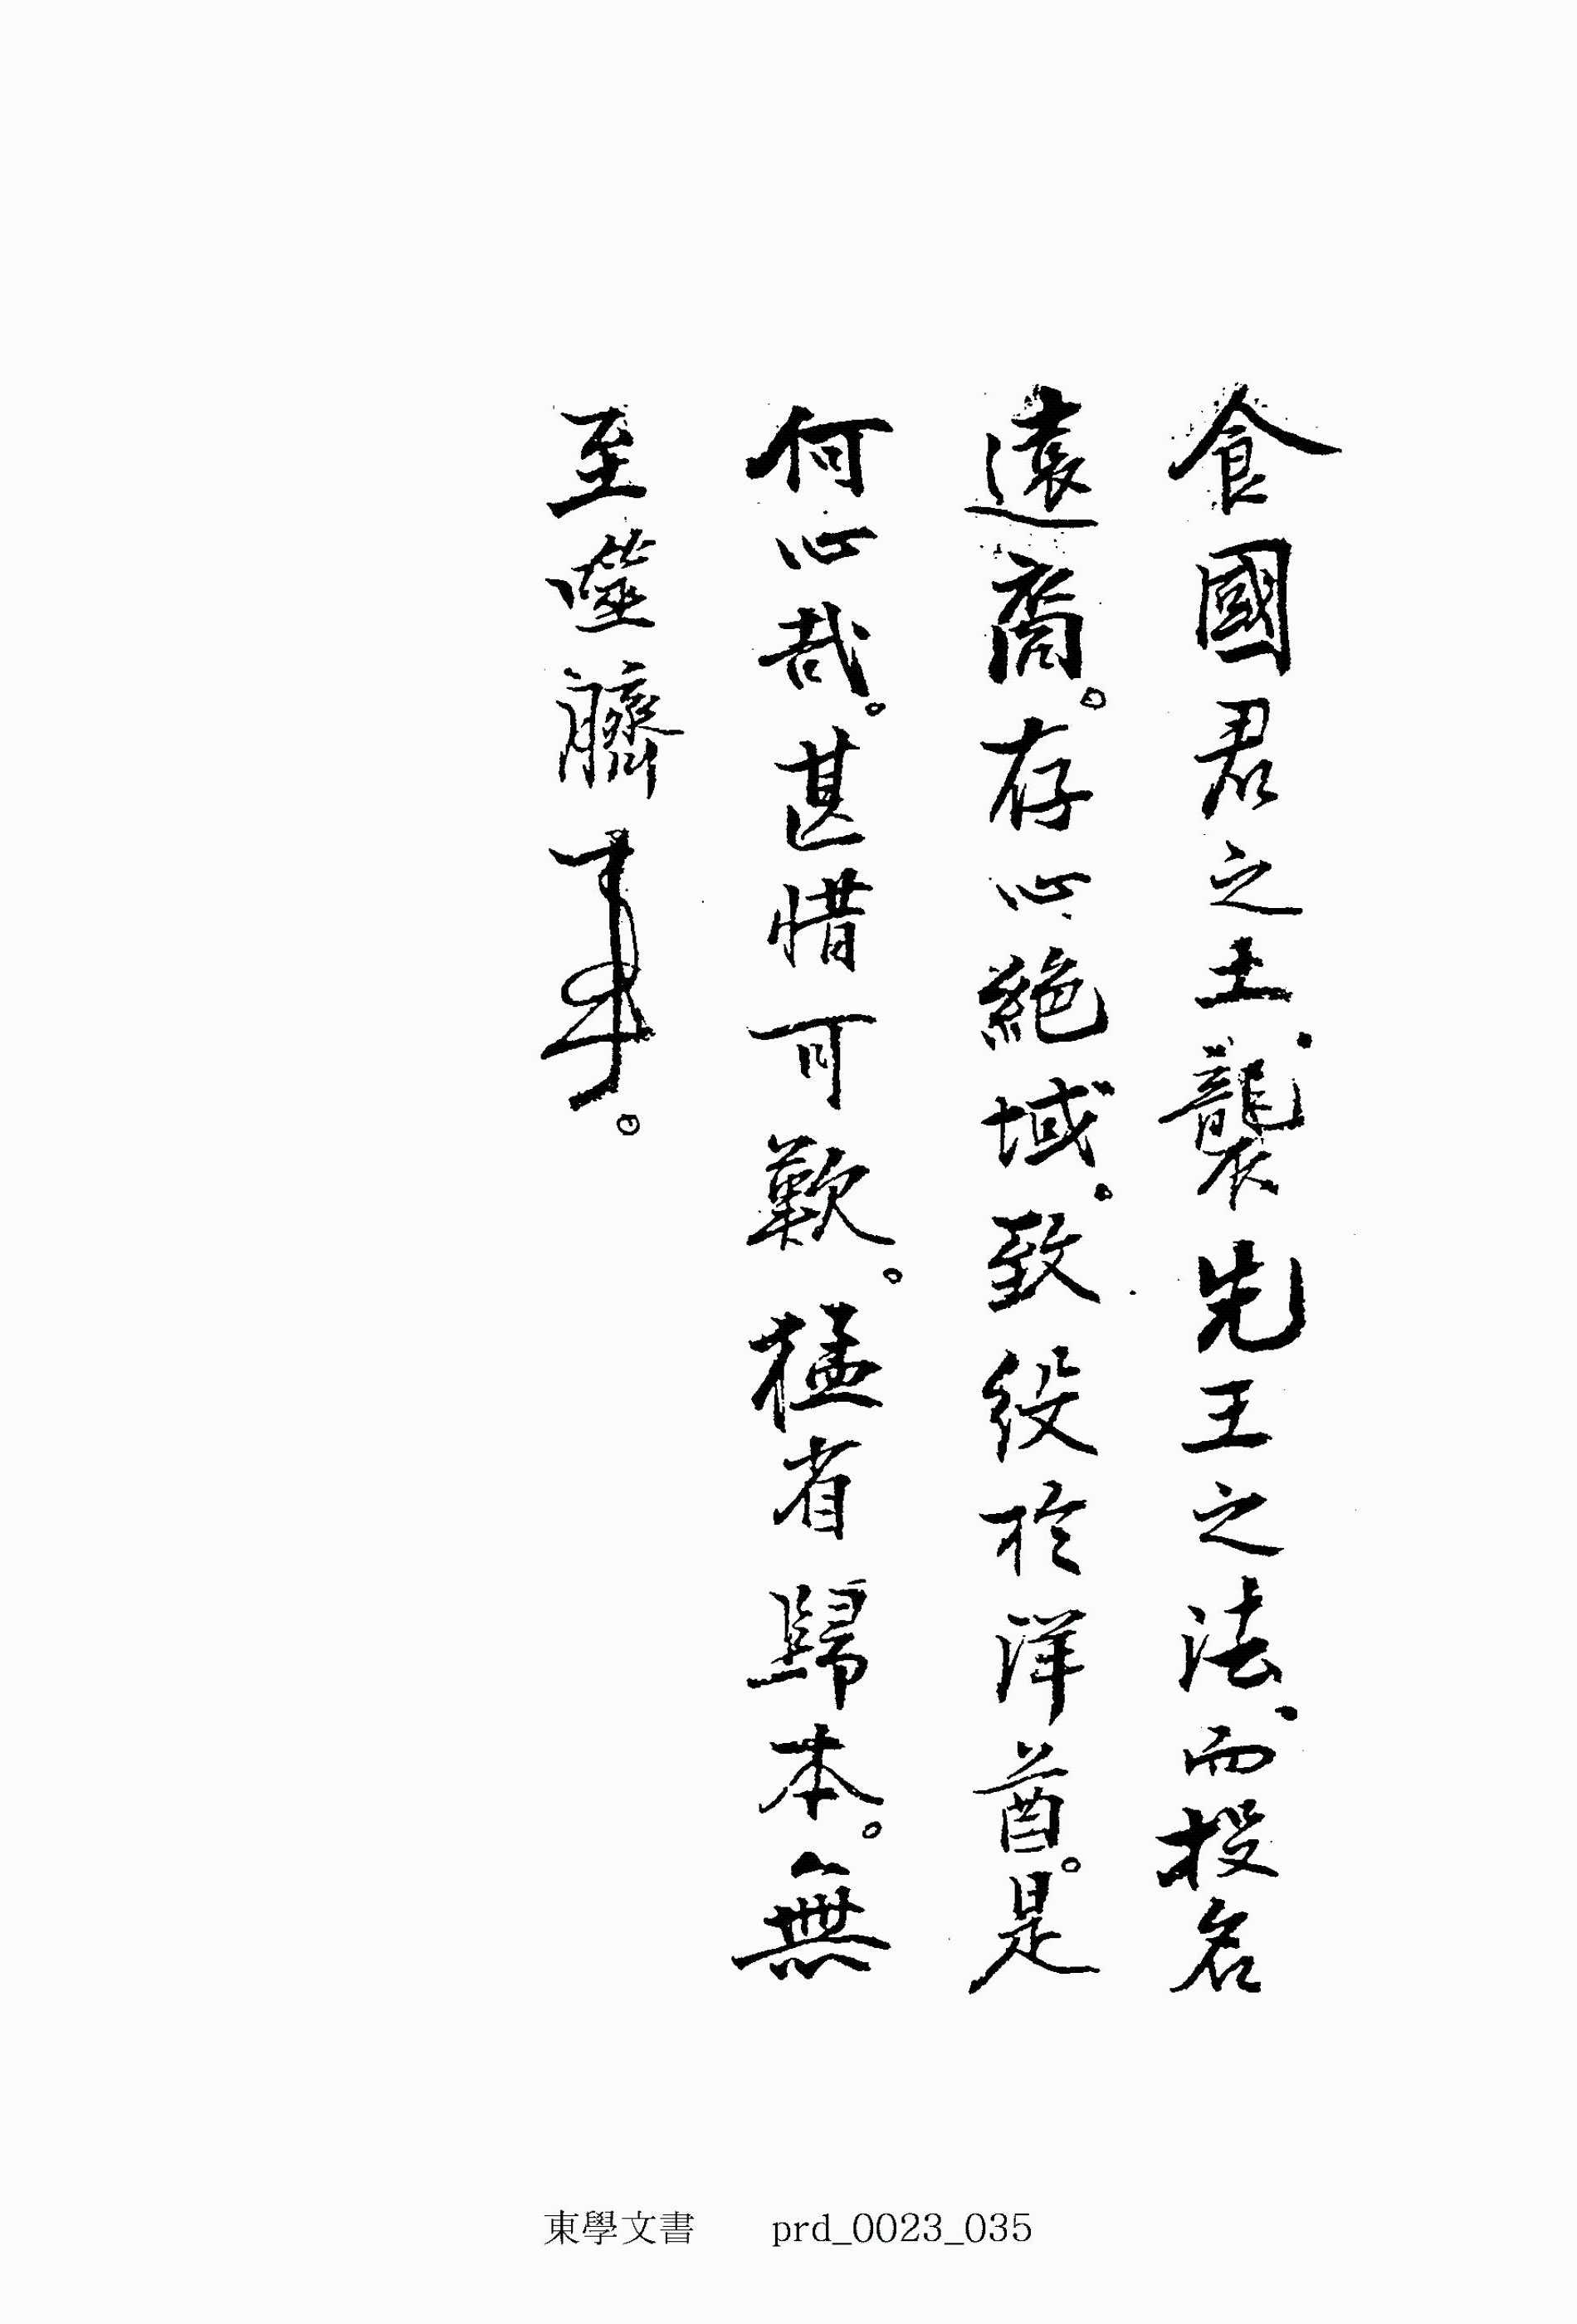 食國君之土、襲先王之法、而投名
遠裔。存心絶域。致役於洋酋。是
何心哉。甚惜可歎。猛省歸本。無
至噬臍
東學文書 prd_0023_035